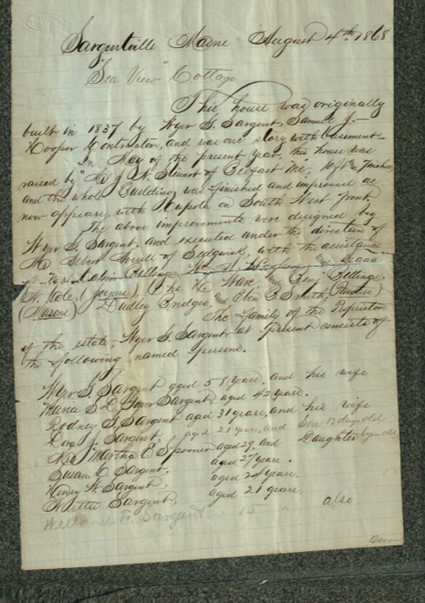 Sargentville Maine August 4th 1868
"Sea View" Cottage
This house was originally
built in 1837 by Wyer G. Sargent, Samuel J.
Hooper Contractor, and was one story with basement
In May of the present year, this house was
raised by Mr J. W. of Belfast Me,
and the whole Building was finished and improved as
now appears, with Cupola on South West front,
The above improvements were designed by
Wyer G. Sargent, and executed under the direction of
Mr Robert of Sedgwick, with the assistance
of Isaac
W. Cole, (Joiners), Billings
(Masons) Dudley Bridges and Eben B. Smith, (Painters)
The family of the Proprietor
of the estate, Wyer G. Sargent, at present consists of
the following named persons.
Wyer G. Sargent aged 58 years, and his wife
Maria S. D. Sargent, aged 42 years.
Rodney S. Sargent aged 31 years, and his wife
J. Sargent, aged 21 years, and Son 17 days old
Mrs Martha C. Spooner aged 29, and Daughter
Susan C. Sargent, aged 27 years.
Henry W. Sargent, aged 24 years.
Nettie Sargent, aged 21 years
Welland H. Sargent 15 " also
Over